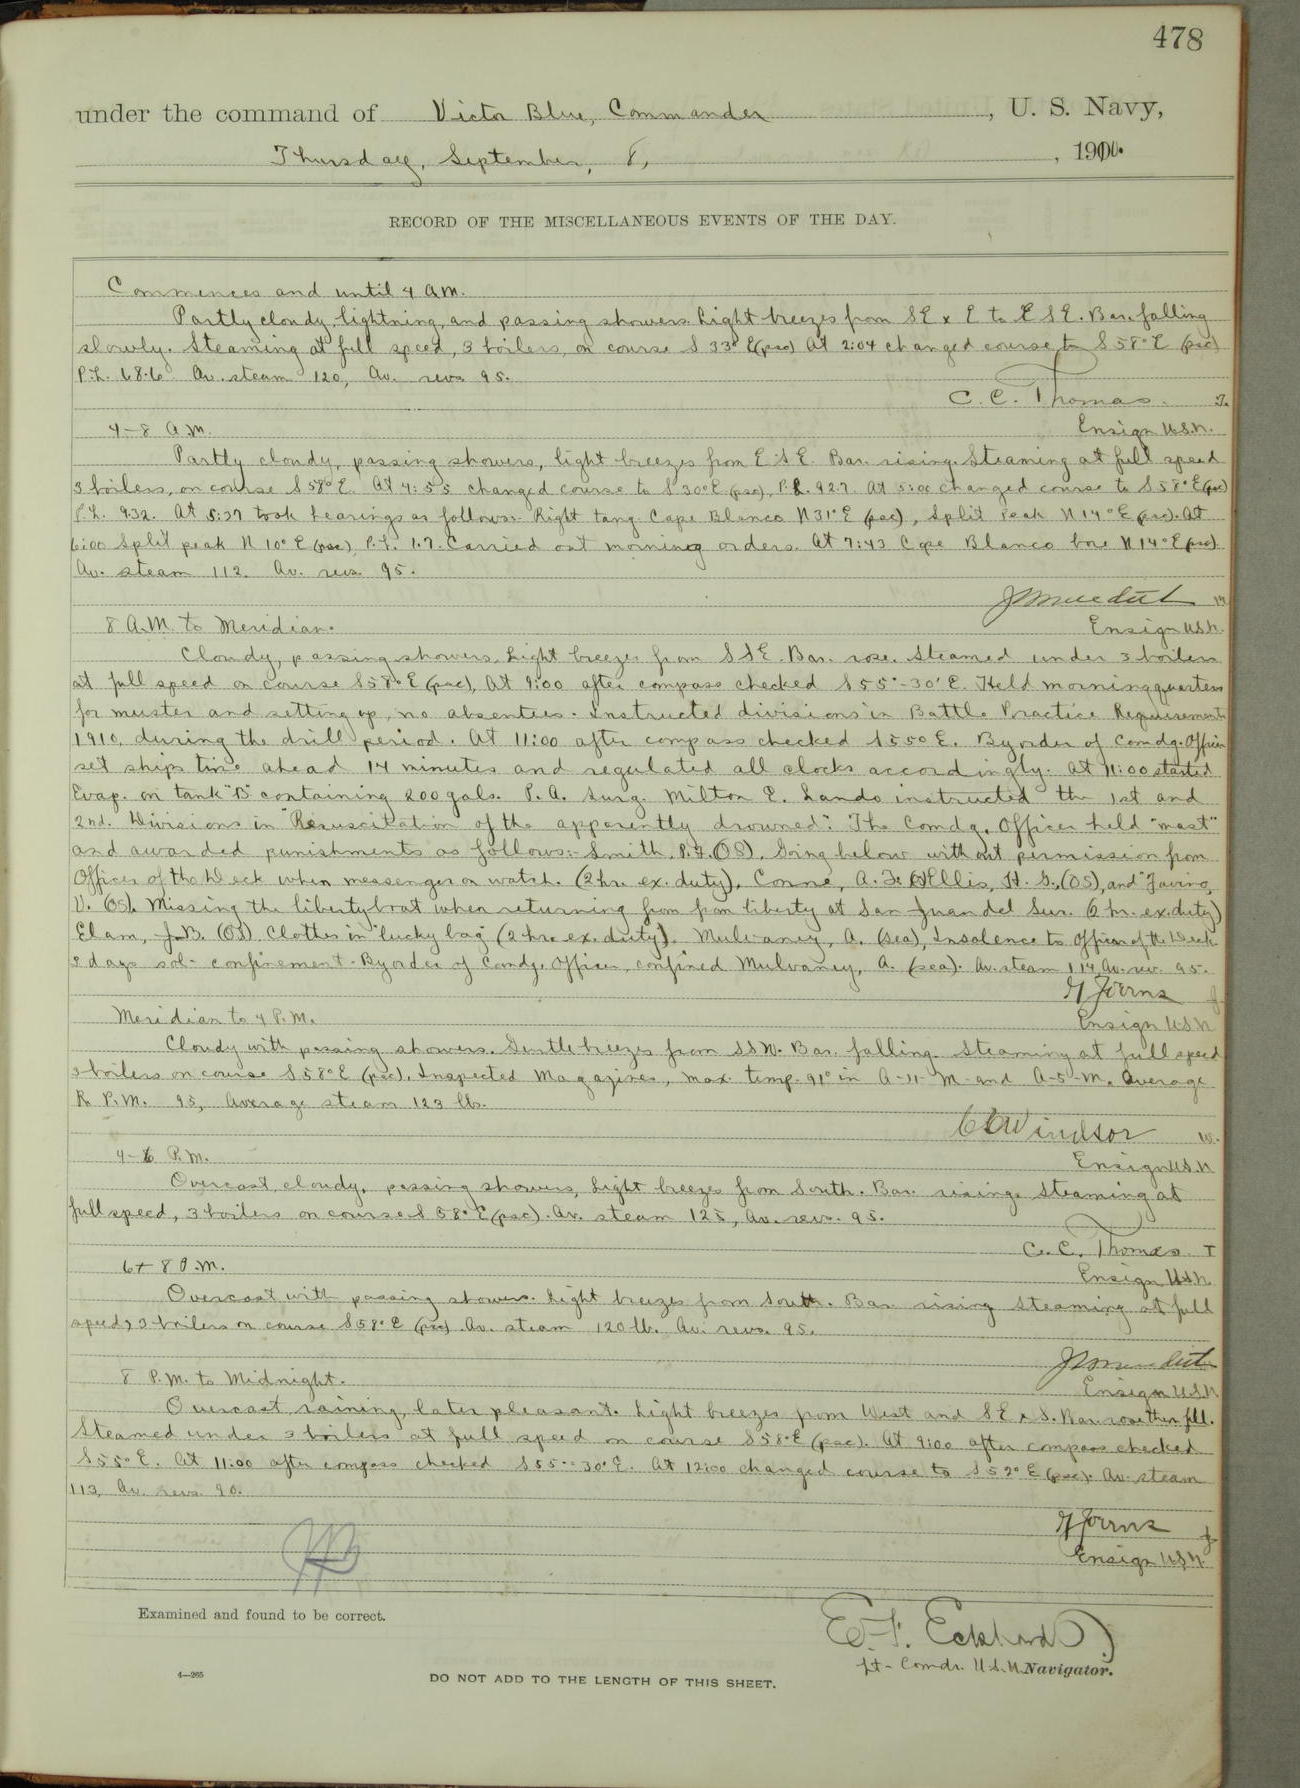 478
under the command of Victor Blue, Commander, U. S. Navy,
Thursday, September, 8, , 1910.
RECORD OF THE MISCELLANEOUS EVENTS OF THE DAY.
Commences and until 4 A.M.
Partly cloudy, lightning, and passing showers. Light breezes from SE x E to E S E. Bar. falling
slowly. Steaming at full speed, 3 boilers, on course S 33° E (psc) At 2:04 changed course to S 58° E (psc)
P.L. 68.6 Av. steam 120, Av. revs 95.
C. C. Thomas. T.
4-8 A.M. Ensign U.S.N.
Partly cloudy, passing showers, light breezes from E.S.E. Bar. rising. Steaming at full speed
3 boilers, on course S 58° E. At 4:55 changed course to S 30° E (psc), P.L. 92.7. At 5:00 changed course to S 58° E (psc)
P.L. 93.2. At 5:37 took bearings as follows:- Right tang. Cape Blanco N 31° E (psc), Split Peak N 14° E (psc). At
6:00 Split peak N 10° E (psc), P.L. 1.7. Carried out morning orders. At 7:43 Cape Blanco bore N 14° E (psc).
Av. steam 112. Av. revs. 95.
8 A.M. to Meridian. Ensign U.S.N.
Cloudy, passing showers. Light breezes from S S E. Bar. rose. Steamed under 3 boilers
at full speed on course S 58° E (psc), At 9:00 after compass checked S 55°-30' E. Held morning quarters
for muster and setting up, no absentees. Instructed divisions in Battle Practice Requirements
1910, during the drill period. At 11:00 after compass checked S 55° E. By order of Comdg. Officer
set ships time ahead 14 minutes and regulated all clocks accordingly. At 11:00 started
Evap. on tank "B" containing 200 gals. P. A. Surg. Milton E. Lando instructed the 1st and
2nd. Divisions in "Resuscitation of the apparently drowned". The Comdg. Officer held "mast"
and awarded punishments as follows:- Smith, P.F. (OS), Going below without permission from
Officer of the Deck when messenger on watch. (2 hr. ex. duty), Conne, A. F. Ellis, H. G., (OS), and Favino,
V. (OS). Missing the liberty boat when returning from from liberty at San Juan del Sur. (6 hr. ex. duty)
Elam, J.B. (OS) Clothes in "lucky bag" (2 hrs. ex. duty). Mulvaney, A. (sea), Insolence to Officer of the Deck
3 days sol- confinement. By order of Comdg. Officer, confined Mulvaney, A. (sea). Av. steam 114, Av. rev. 95.
Meridian to 4 P.M. Ensign U.S.N.
Cloudy with passing showers. Gentle breezes from SSW. Bar. falling. Steaming at full speed
3 boilers on course S 58° E (psc). Inspected Magazines, max. temp. 91° in A-11-M and A-5-M. Average
R. P.M. 95, Average steam 123 lbs.
Windsor W.
4-6 P.M. Ensign U.S.N.
Overcast, cloudy, passing showers, light breezes from South. Bar. rising. Steaming at
full speed, 3 boilers on course S 58° E (psc). Av. steam 125, Av. revs. 95.
C. C. Thomas T
6 + 8 P.M. Ensign U.S.N.
Overcast with passing showers. Light breezes from South. Bar. rising Steaming at full
speed, 3 boilers on course S 58° E (psc) Av. steam 120 lb. Av. revs. 95.
8 P.M. to Midnight. Ensign U.S.N.
Overcast, raining, later pleasant. Light breezes from West and SE x S. Bar. rose then fell.
Steamed under 3 boilers at full speed on course S 58° E (psc). At 9:00 after compass checked
S 55° E. At 11:00 after compass checked S 55°-30' E. At 12:00 changed course to S 59° E (psc). Av. steam
113, Av. revs. 90.
Ensign U.S.N.
Examined and found to be correct.
E. F. Eckhardt
Lt-Comdr. U.S.N. Navigator.
4—265
DO NOT ADD TO THE LENGTH OF THIS SHEET.